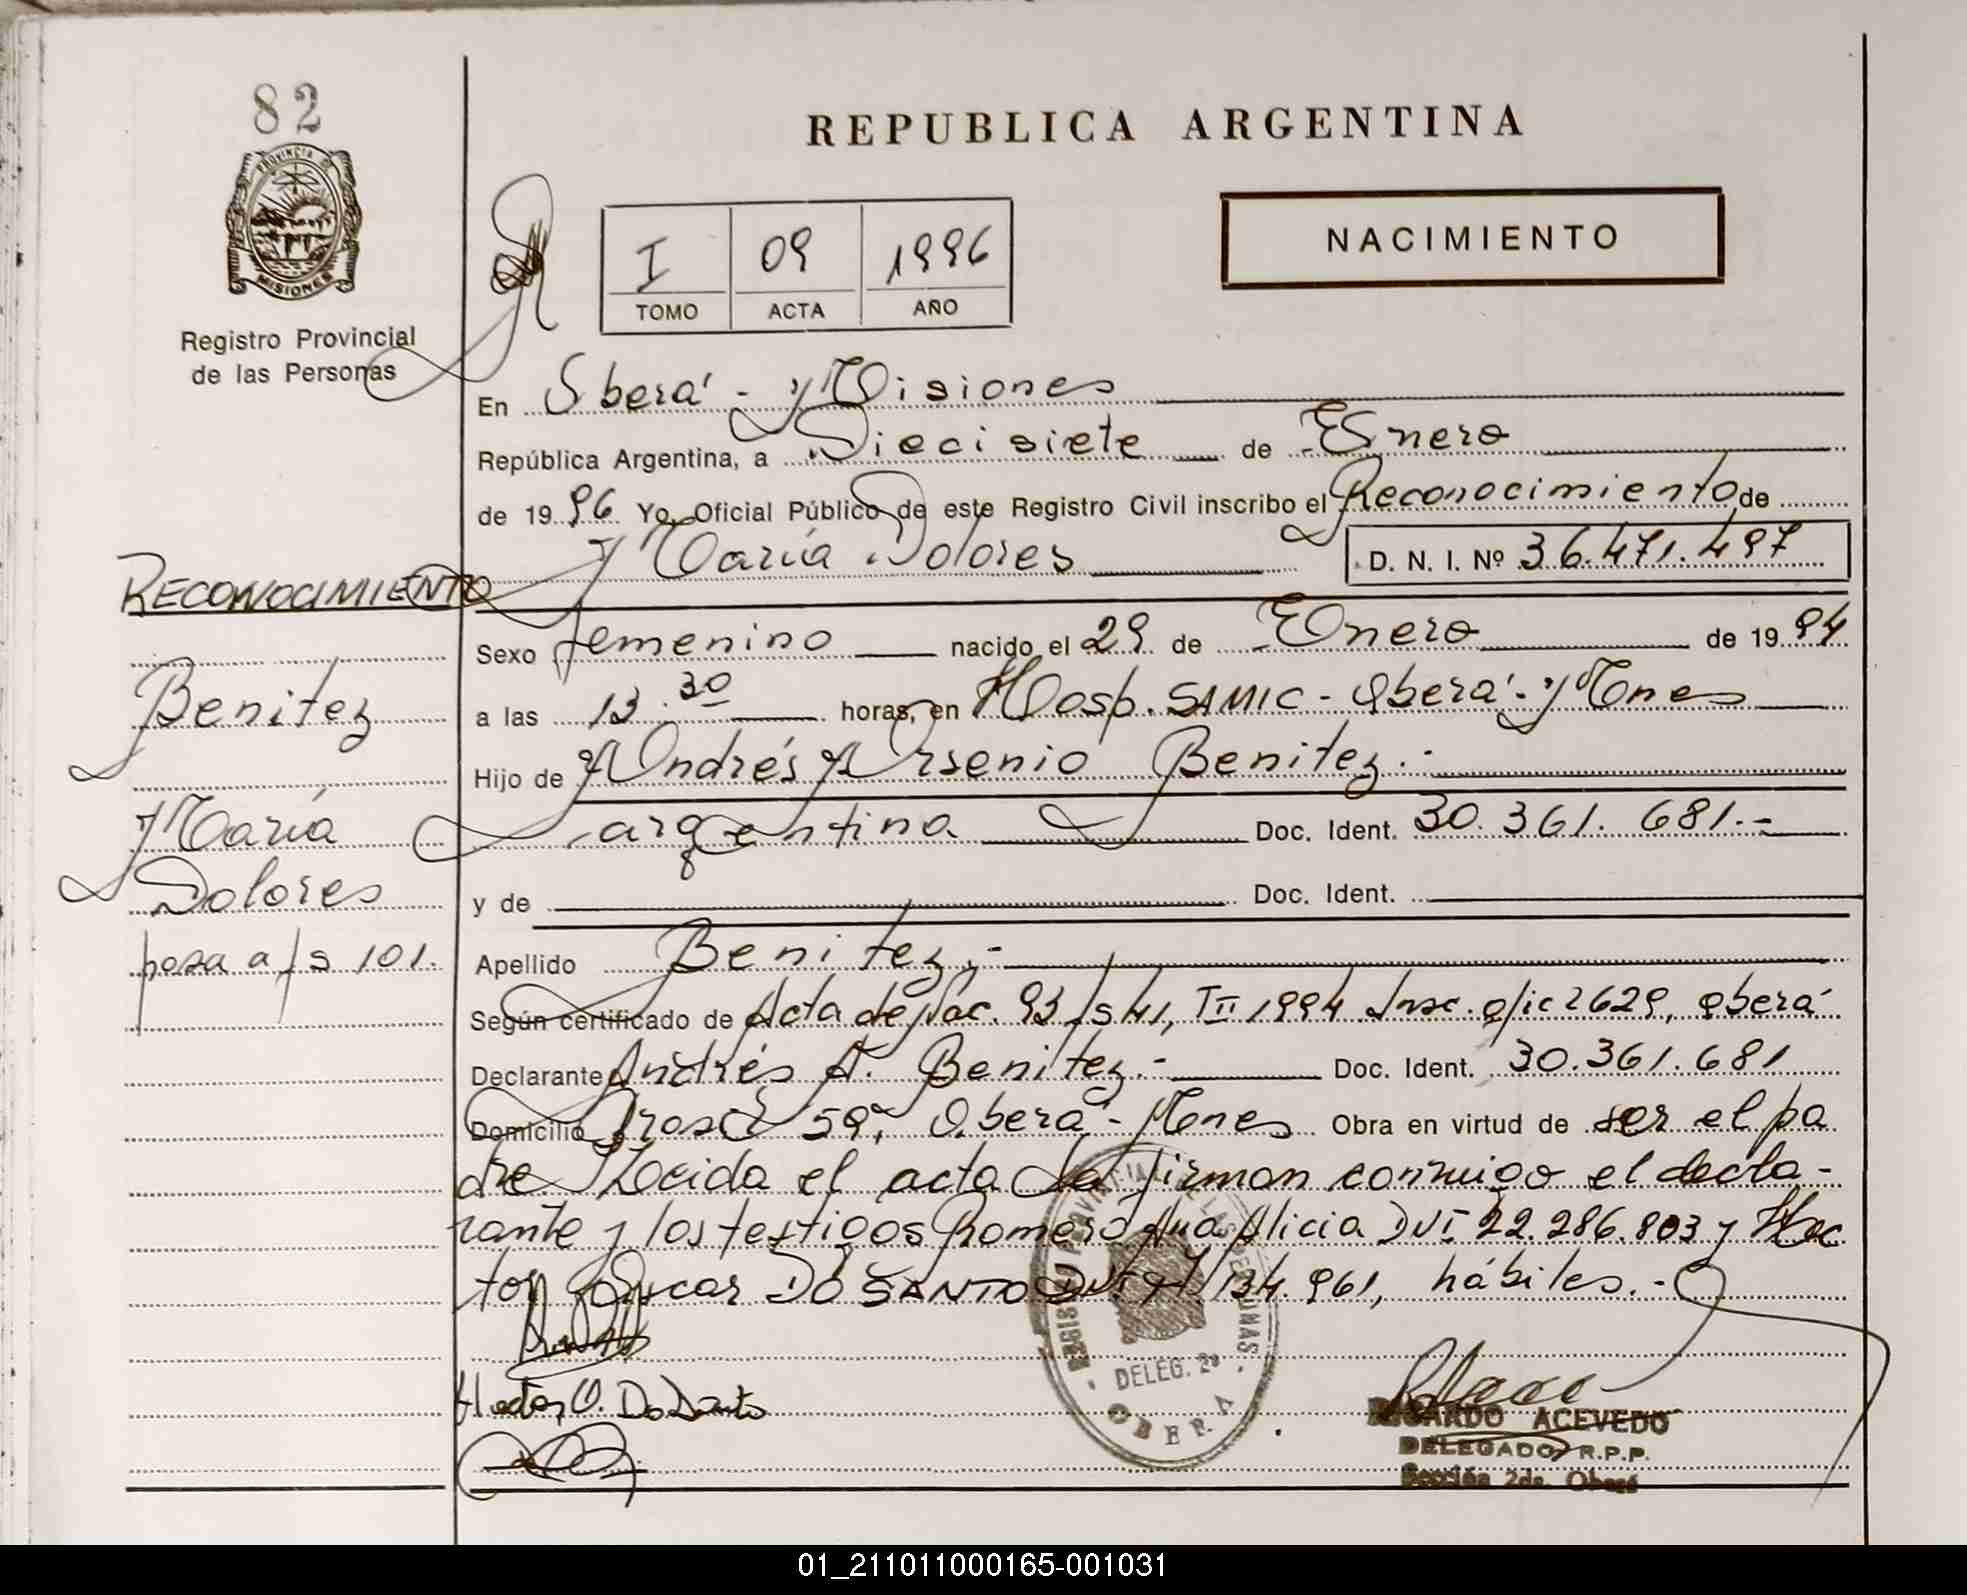 82
PROVINCIA DE
MISIONES
Registro Provincial
de las Personas
REPUBLICA ARGENTINA
NACIMIENTO
I 09 1996
TOMO ACTA AÑO
En Oberá - Misiones
República Argentina, a Diecisiete de Enero
de 1996 Yo, Oficial Público de este Registro Civil inscribo el Reconocimiento de
María Dolores D. N. I. Nº 36.471.497
RECONOCIMIENTO
Sexo femenino nacido el 29 de Enero de 1994
a las 13.30 horas, en Hosp. SAMIC - Oberá - Mnes
Hijo de Andrés Arsenio Benitez.-
argentino Doc. Ident. 30.361.681.-
y de Doc. Ident.
Apellido Benitez.-
Según certificado de Acta de Nac. 93 fs 41, T II 1994 Insc. ofic 2629, Oberá
Declarante Andrés A. Benitez.- Doc. Ident. 30.361.681
Domicilio 59, Oberá - Mnes Obra en virtud de ser el pa
dre Leída el acta la firman conmigo el decla-
rante y los testigos Romero Ana Alicia DNI 22.286.803 y Hec
tor Oscar DO SANTO DNI 134.961, hábiles.-
Benitez
María
Dolores
pasa a fs 101.
Hector O. Do Santo
DELEG. 2ª
OBERA
RICARDO ACEVEDO
DELEGADO R.P.P.
Sección 2da. Oberá
01_211011000165-001031